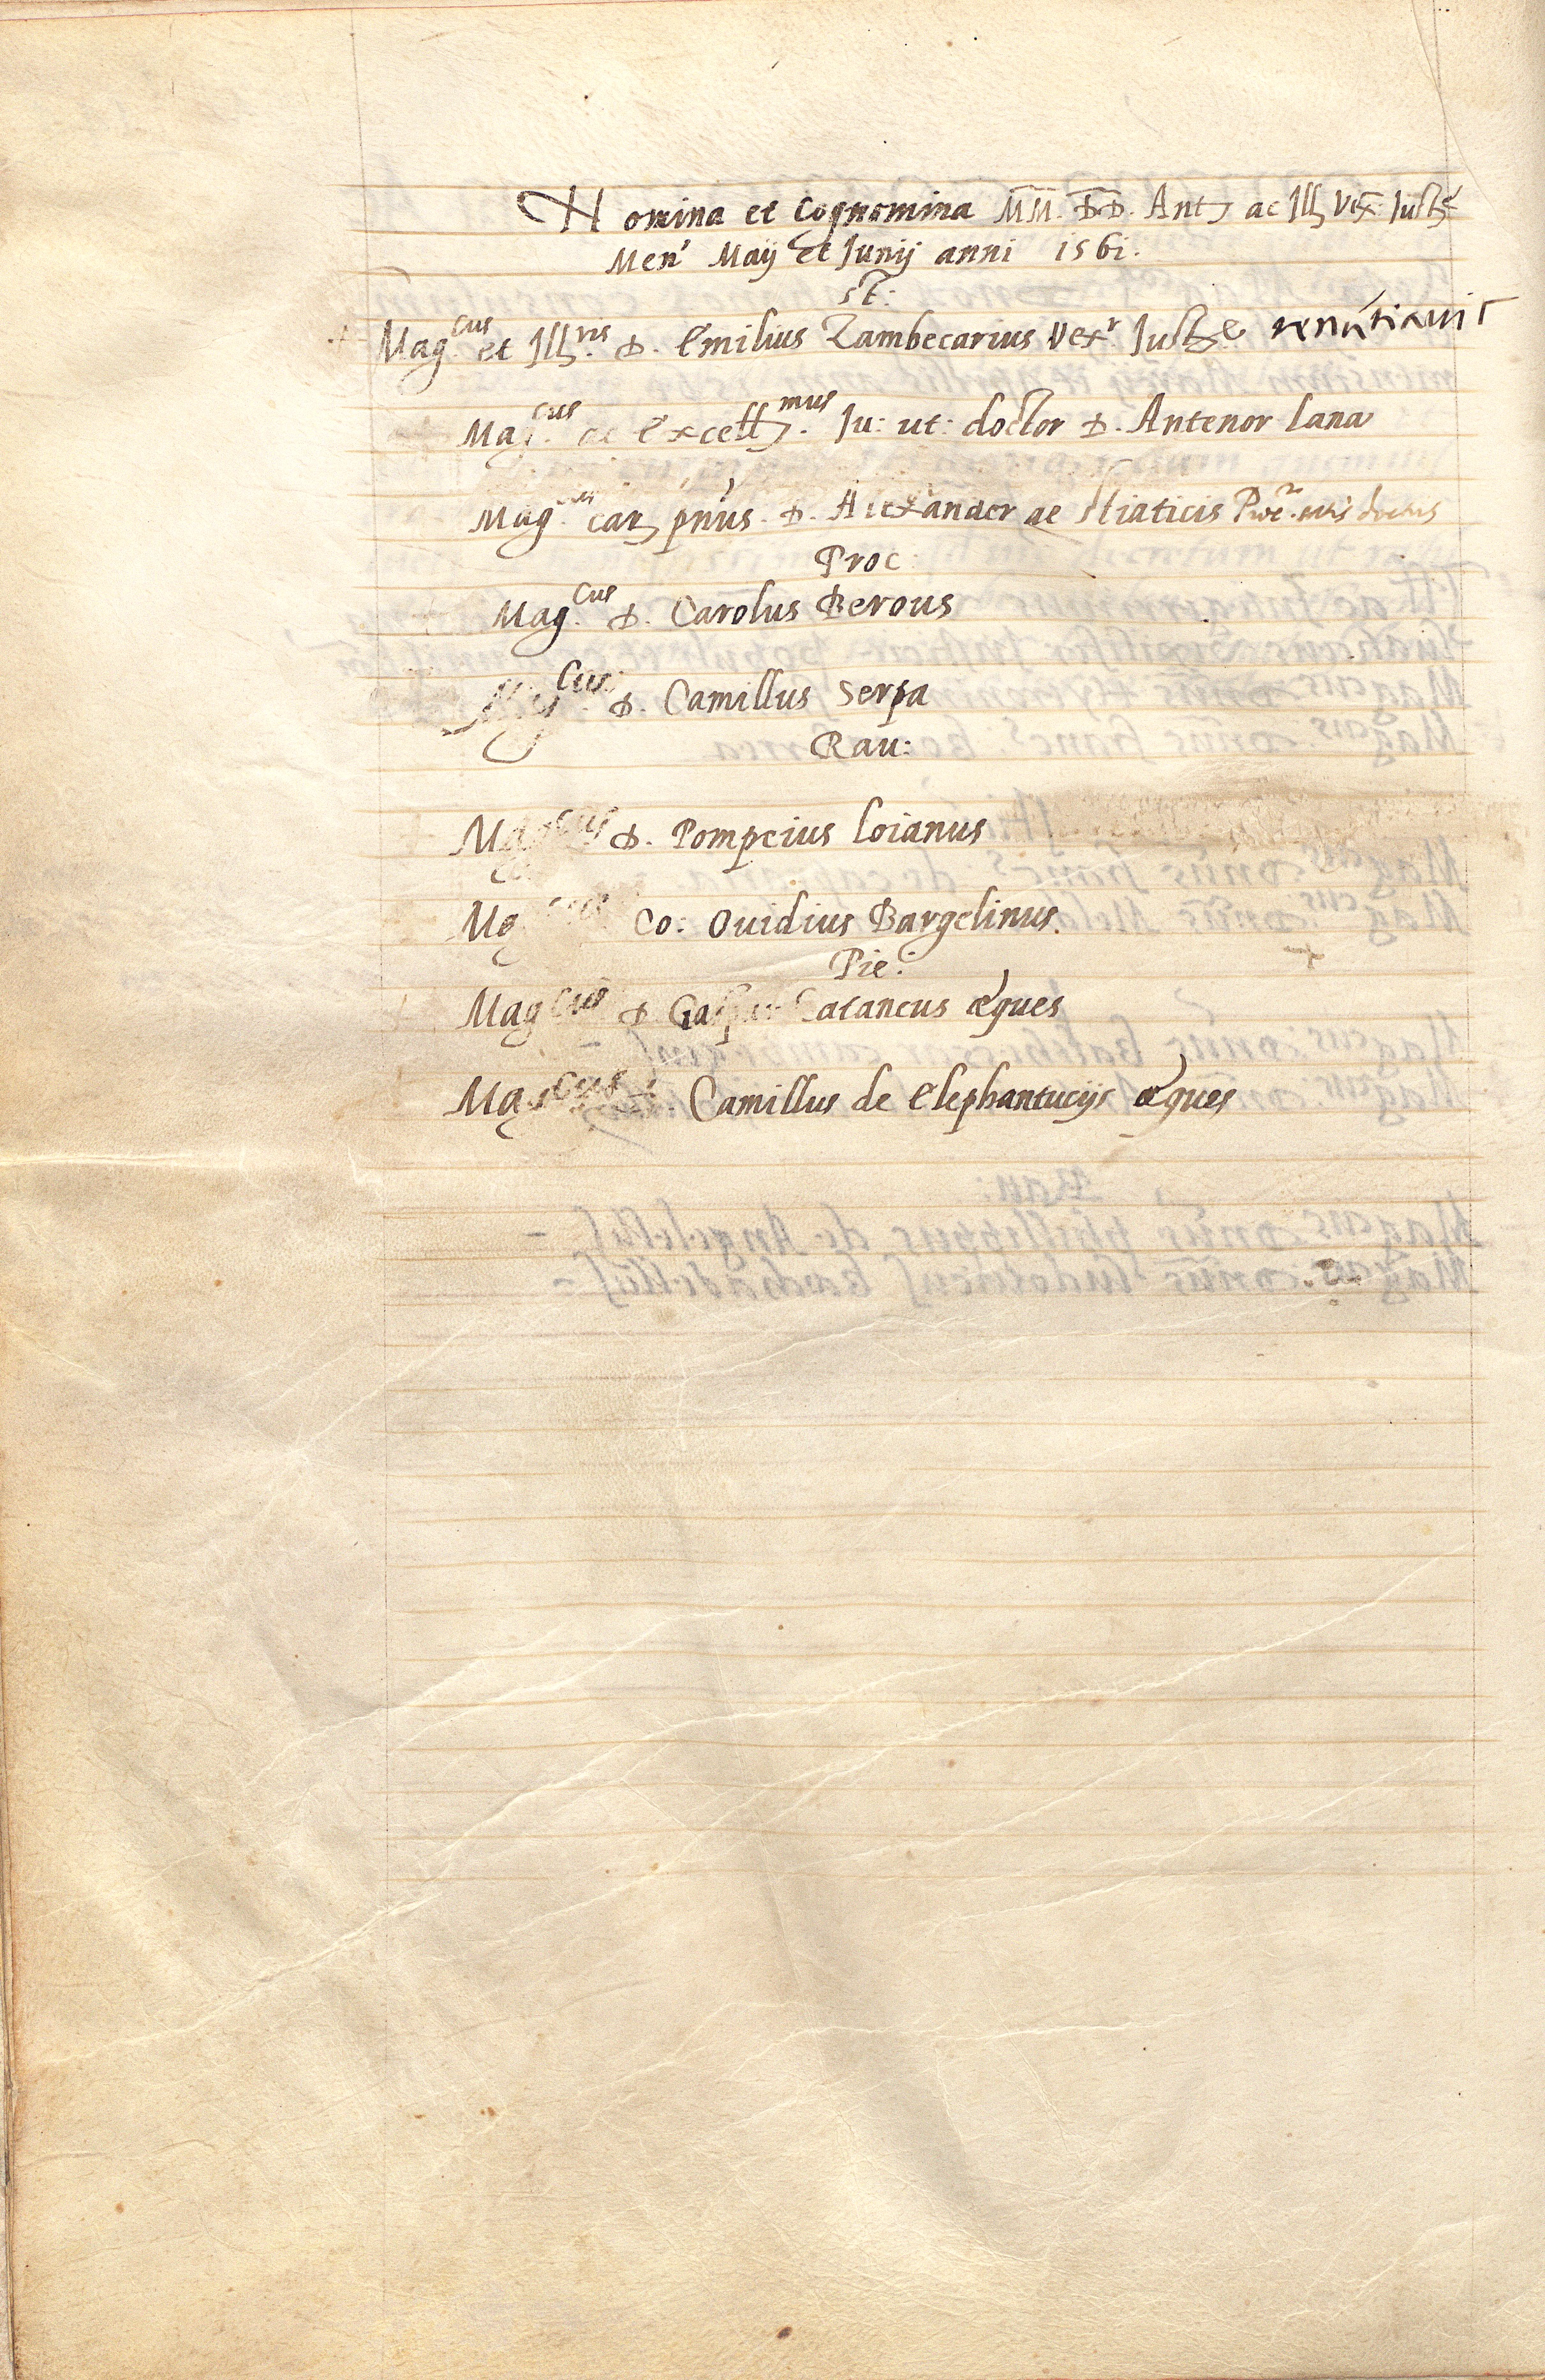 Nomina et Cognomina MM. DD. Ant. ac Ill. Vex: Iust.ae
Men' Maij et Junij anni 1561.
St:
Mag.cus et Ill.ris D. Emilius Zambecarius Vex.r Just.ae renūtiavit
Mag.cus ac Excell.mus Ju: ut: doctor D. Antenor Lana
Mag. D. Alexander de
Proc:
Mag.cus D. Carolus Berous
Mag.cus D. Camillus Serpa
Rau:
Mag.cus D. Pompeius Loianus
Mag.cus Co: Ovidius Bargelinus.
Pie:
Mag.cus D. Gaspar Cataneus æques
Mag.cus D. Camillus de Elephantucijs æques